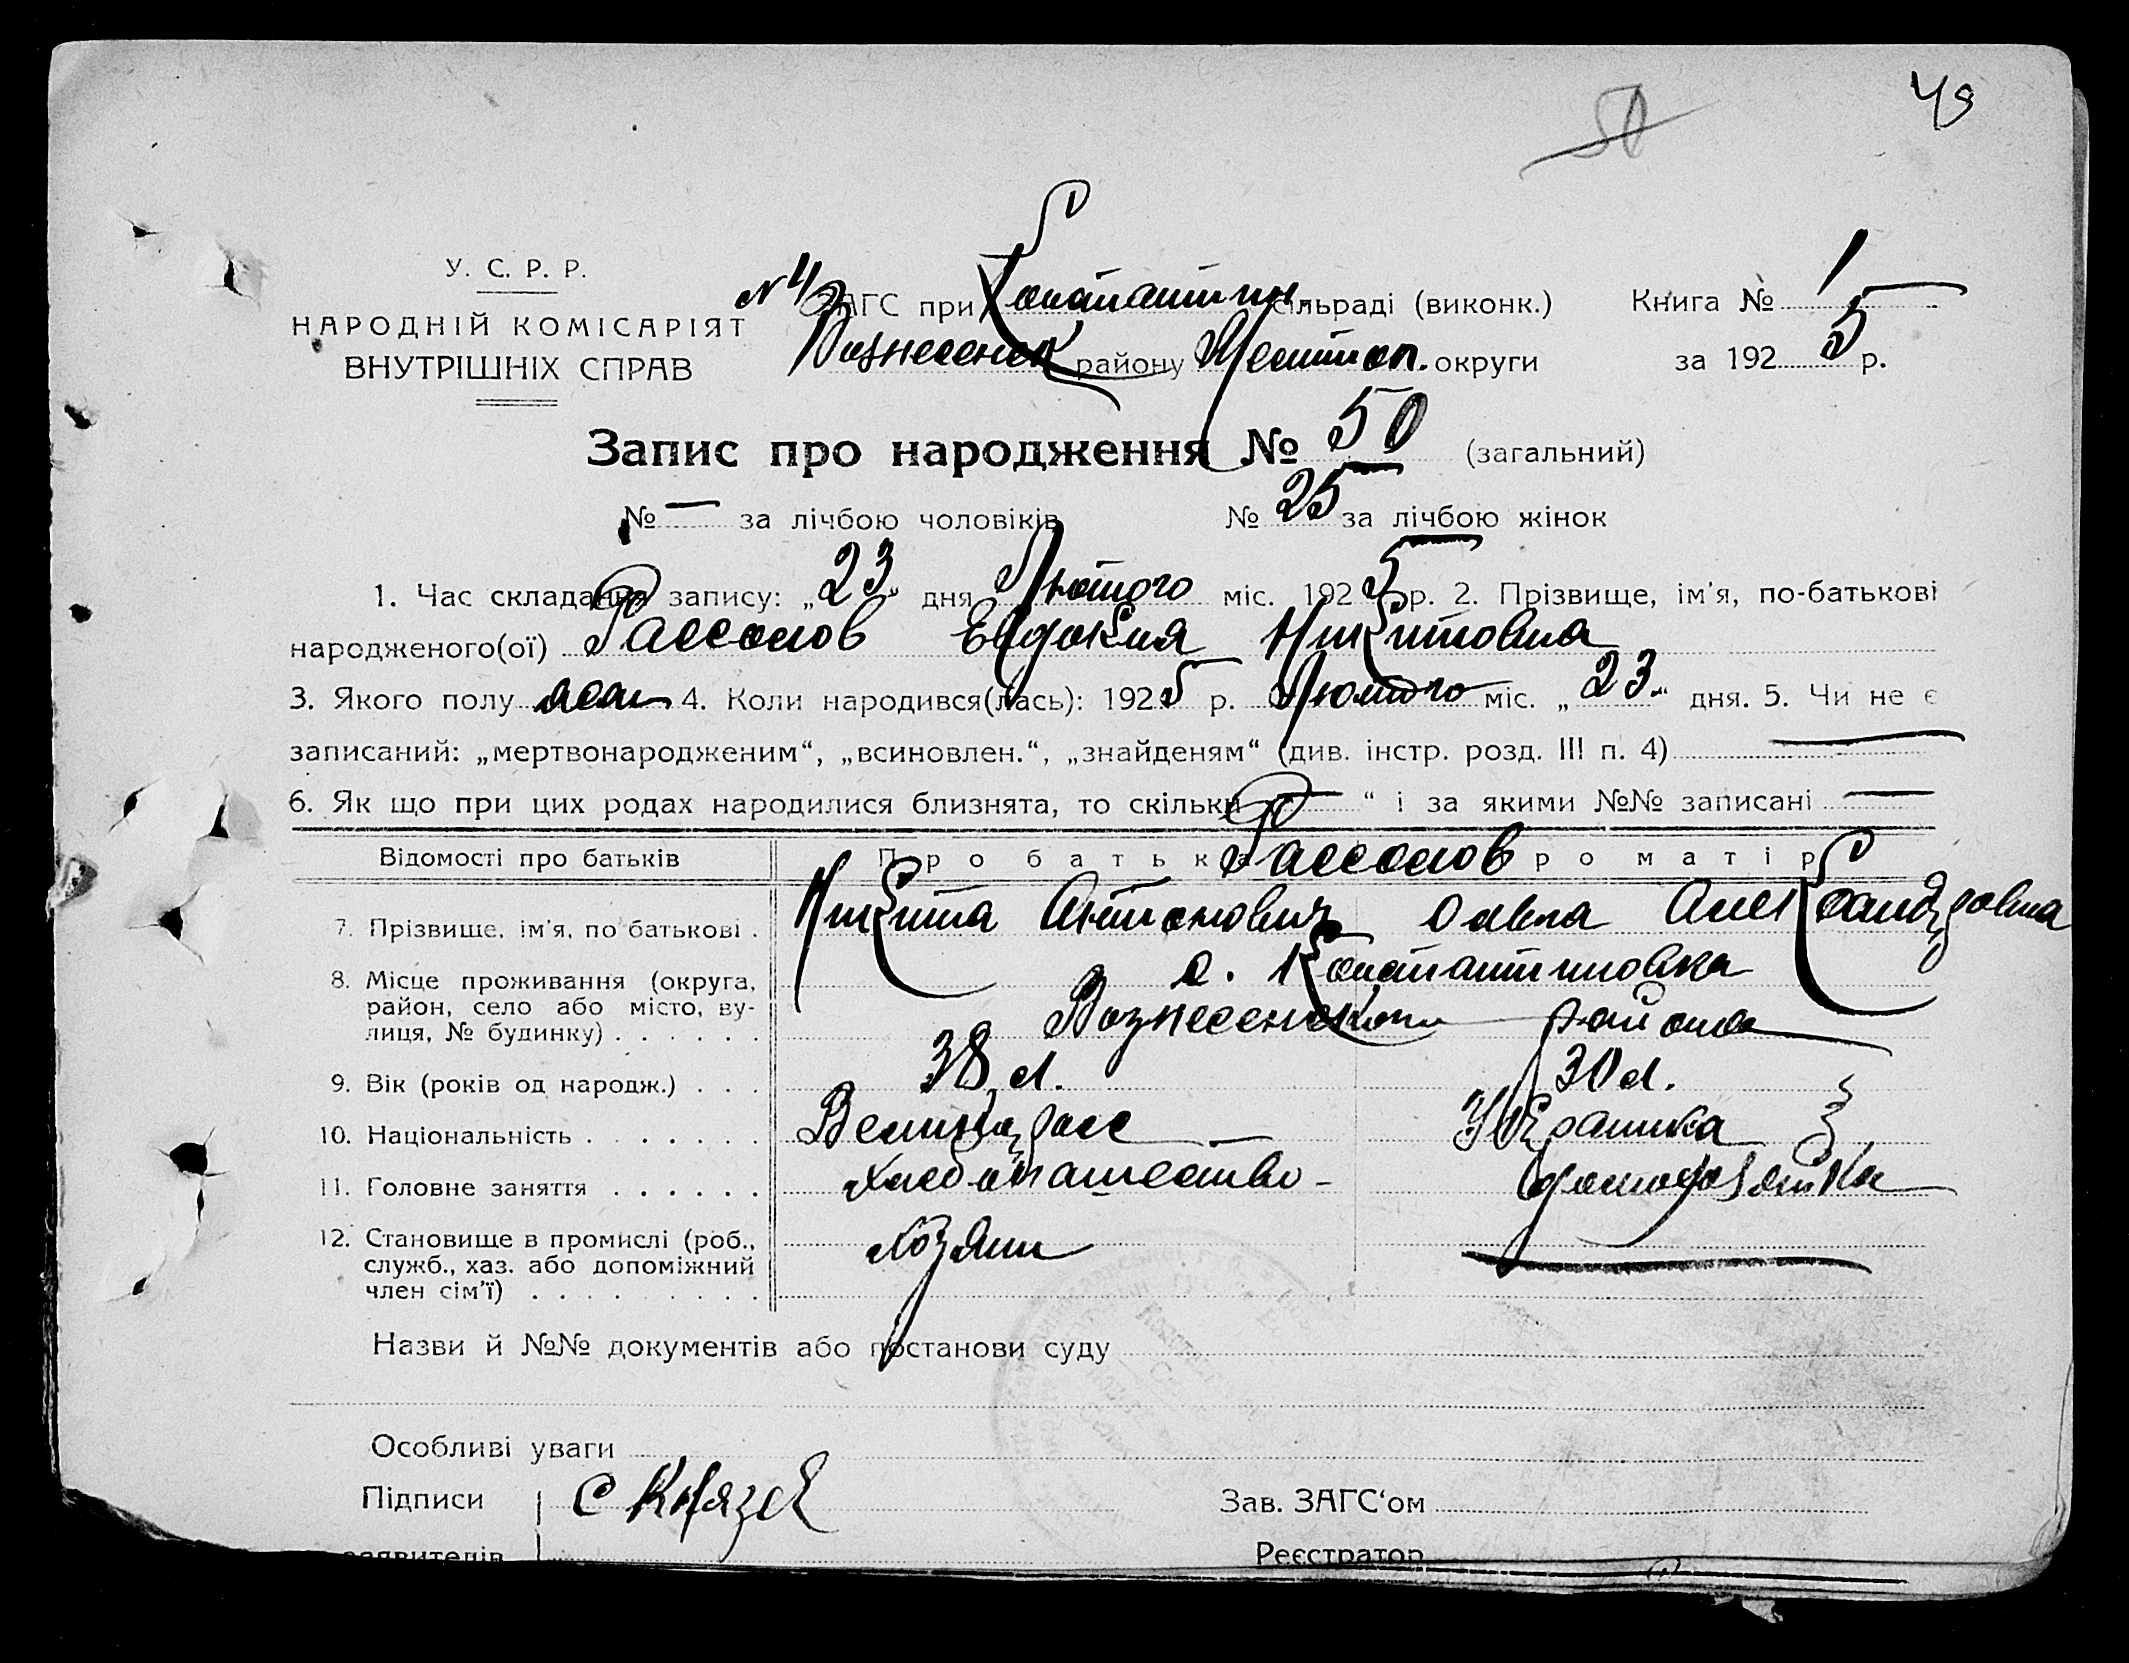 49
50
У. С. Р. Р.
НАРОДНІЙ КОМІСАРІЯТ
ВНУТРІШНІХ СПРАВ
№ 4 ЗАГС при Константин. сільраді (виконк.) Книга № 1
Вознесенск району Мелитоп. округи за 1925 р.
Запис про народження № 50 (загальний)
№ — за лічбою чоловіків № 25 за лічбою жінок
1. Час складання запису: „23“ дня Лютого міс. 1925 р. 2. Прізвище, ім'я, по-батькові
народженого(ої) Рассолов Евдокия Никитовна
3. Якого полу жен 4. Коли народився(лась): 1925 р. Лютого міс. „23“ дня. 5. Чи не є
записаний: „мертвонародженим“, „всиновлен.“, „знайденям“ (див. інстр. розд. III п. 4) —
6. Як що при цих родах народилися близнята, то скільки — “ і за якими №№ записані —
Відомості про батьків Про батька Рассолов Про матір
7. Прізвище, ім'я, по батькові . Никита Антонович Олена Александровна
8. Місце проживання (округа, с. Константиновка
район, село або місто, ву-
лиця, № будинку) . . . . . . Вознесенского района
9. Вік (років од народж.) . . . 38 л. 30 л.
10. Національність . . . . . . . Великоросс — Украинка
11. Головне заняття . . . . . . хлебопашество - домохозяйка
12. Становище в промислі (роб., хозяин —
служб., хаз. або допоміжний
член сім'ї) . . . . . . . . .
Назви й №№ документів або постанови суду
Особливі уваги
Підписи С Князев Зав. ЗАГС'ом
заявителів Реєстратор